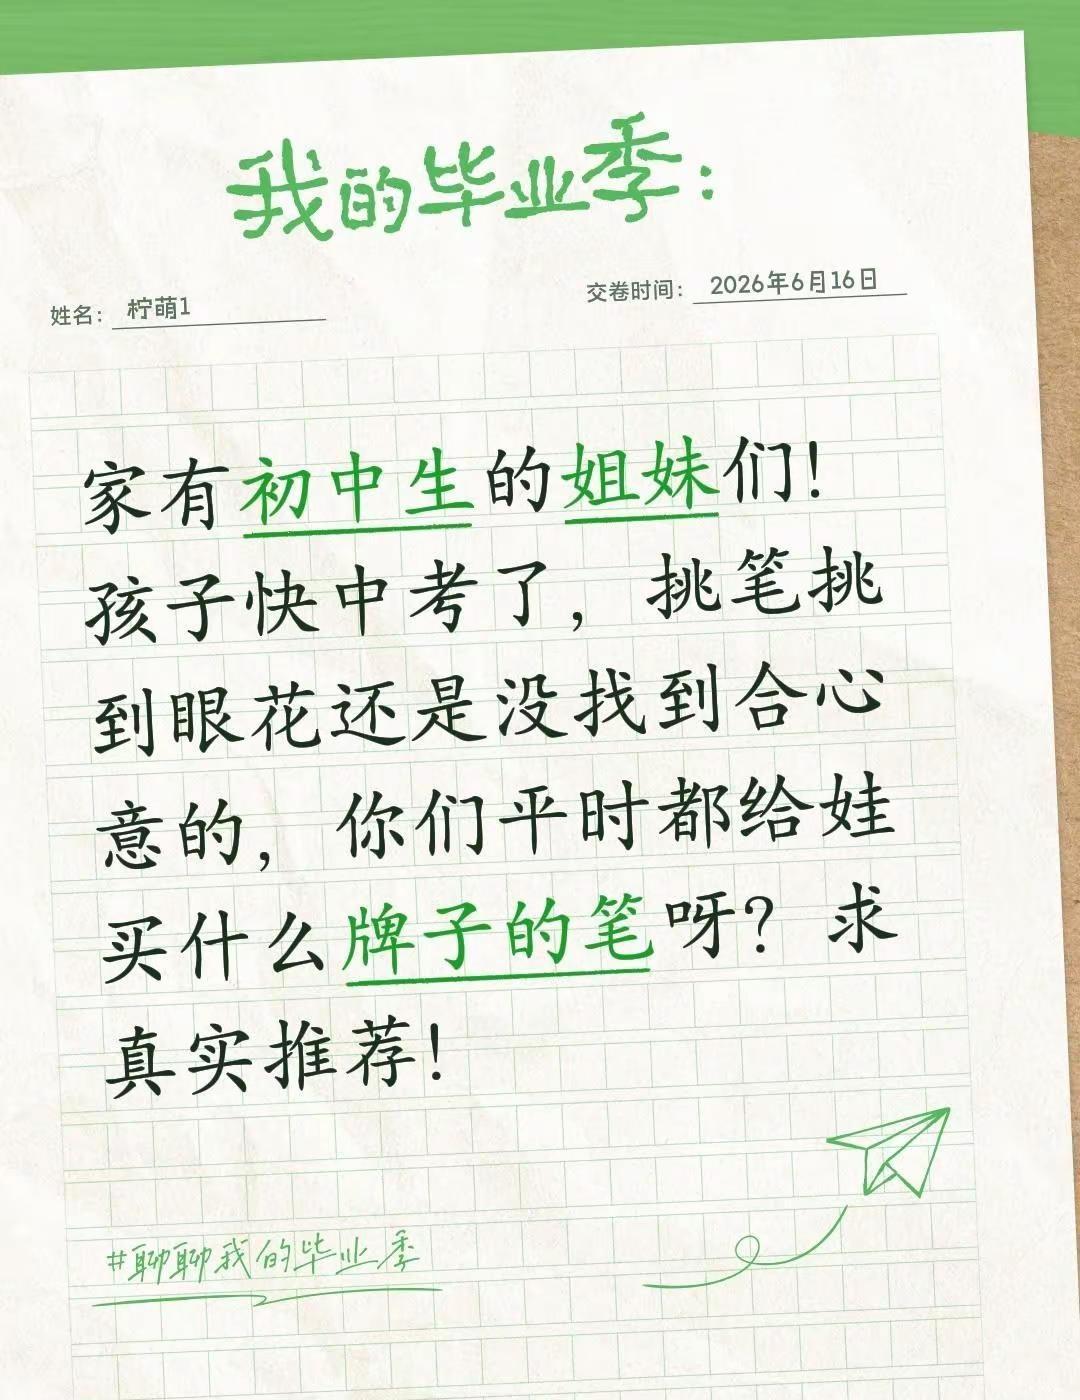 我的毕业季：
姓名： 柠萌1
交卷时间： 2026年6月16日
家有初中生的姐妹们！
孩子快中考了，挑笔挑
到眼花还是没找到合心
意的，你们平时都给娃
买什么牌子的笔呀？求
真实推荐！
#聊聊我的毕业季